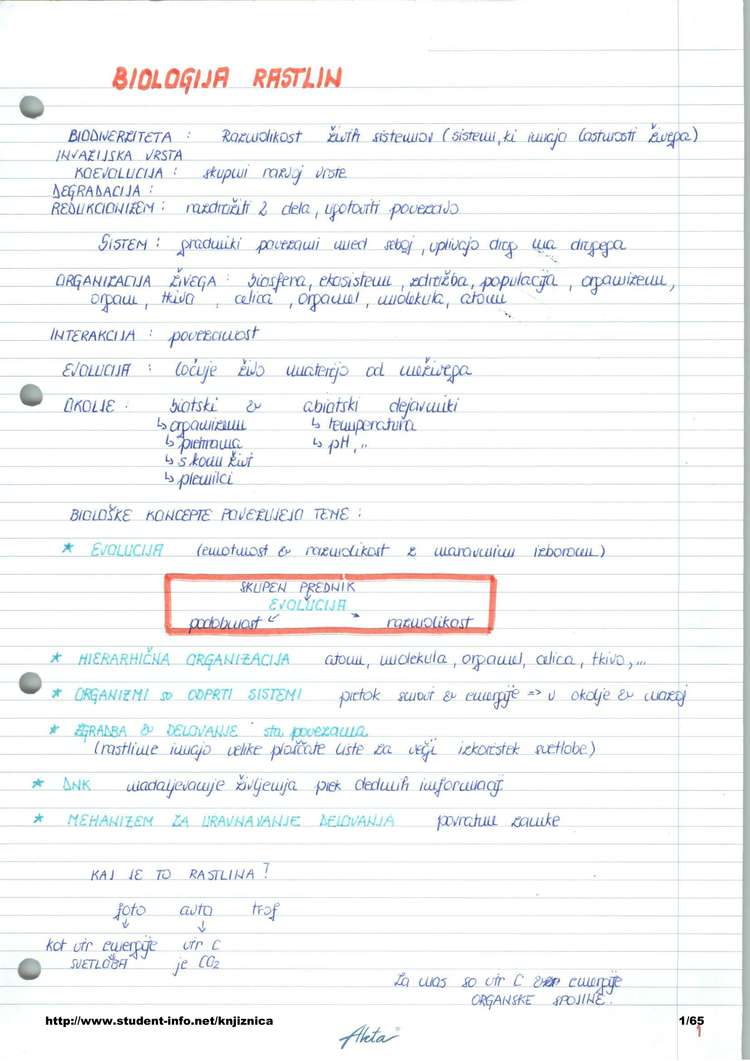 BIOLOGIJA RASTLIN
BIODIVERZITETA : Raznolikost živih sistemov (sistemi, ki imajo lastnosti živega)
INVAZIJSKA VRSTA
KOEVOLUCIJA : skupni razvoj vrste
DEGRADACIJA :
REDUKCIONIZEM : razdražiti 2 dela, ugotoviti povezavo
SISTEM : gradniki povezani med seboj, vplivajo drug na drugega
ORGANIZACIJA ŽIVEGA : biosfera, ekosistem, združba, populacija, organizem,
organ, tkivo, celica, organel, molekula, atom
INTERAKCIJA : povezanost
EVOLUCIJA : ločuje živo materijo od neživega
OKOLJE : biotski & abiotski dejavniki
↳ organizmi ↳ temperatura
↳ prehrana ↳ pH, ..
↳ s kom živi
↳ plenilci
BIOLOŠKE KONCEPTE POVEZUJEJO TEME :
* EVOLUCIJA (enotnost & raznolikost z naravnim izborom)
SKUPEN PREDNIK
EVOLUCIJA
podobnost ↙ ↘ raznolikost
* HIERARHIČNA ORGANIZACIJA atom, molekula, organel, celica, tkivo,...
* ORGANIZMI so ODPRTI SISTEMI pretok snovi & energije => v okolje & nazaj
* ZGRADBA & DELOVANJE sta povezana
(rastline imajo velike ploščate liste za večji izkoristek svetlobe)
* DNK nadaljevanje življenja prek dednih informacij
* MEHANIZEM ZA URAVNAVANJE DELOVANJA povratne zanke
KAJ JE TO RASTLINA?
foto avto trof
↓ ↓
kot vir energije vir C
SVETLOBA je CO2
Za nas so vir C energije
ORGANSKE SPOJINE.
http://www.student-info.net/knjiznica 1/65
1
Akta